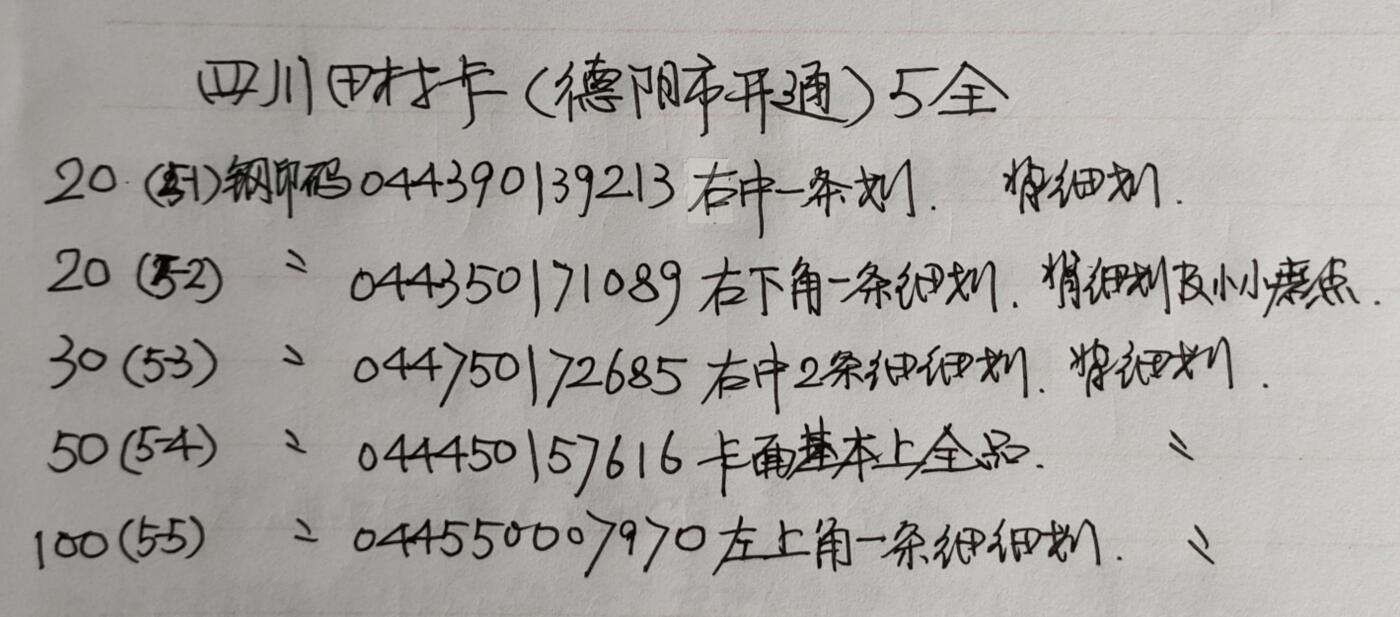 四川田村卡(德阳市开通)5全
20(5-1)钢印码044390139213右中一条划. 背细划.
20(5-2) 〃 044350171089右下角一条细划. 背细划及小小磨点.
30(5-3) 〃 044750172685右中2条细细划. 背细划.
50(5-4) 〃 044450157616卡面基本上全品. 〃
100(5-5) 〃 044550007970左上角一条细细划. 〃